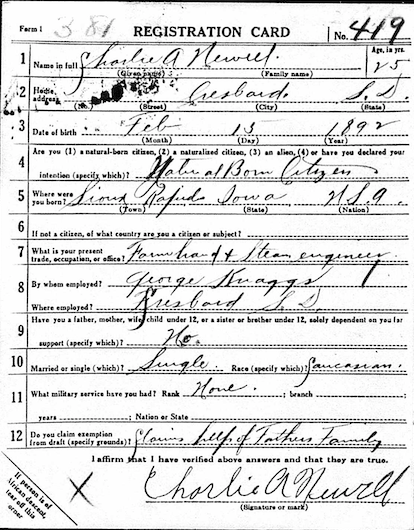 Form 1 381 REGISTRATION CARD No. 419
1 Name in full Charlie A Newell Age, in yrs. 25
(Given name) (Family name)
2 Home address Cresbard S. D.
(No.) (Street) (City) (State)
3 Date of birth Feb 13 1892
(Month) (Day) (Year)
4 Are you (1) a natural-born citizen, (2) a naturalized citizen, (3) an alien, (4) or have you declared your
intention (specify which)? Natural Born Citizen
5 Where were you born? Sioux Rapids Iowa U.S.A.
(Town) (State) (Nation)
6 If not a citizen, of what country are you a citizen or subject?
7 What is your present trade, occupation, or office? Farmhand & Steam engineer
8 By whom employed? George Knaggs
Where employed? Kresbard S. D.
9 Have you a father, mother, wife, child under 12, or a sister or brother under 12, solely dependent on you for
support (specify which)? No.
10 Married or single (which)? Single. Race (specify which)? Caucasian.
11 What military service have you had? Rank None. ; branch
years ; Nation or State
12 Do you claim exemption from draft (specify grounds)? Claims help of Fathers Family
I affirm that I have verified above answers and that they are true.
X Charlie A Newell
(Signature or mark)
If person is of
African descent,
tear off this
corner